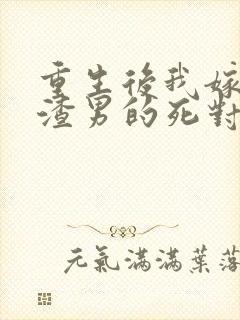 重生後我嫁
渣男的死對
元氣滿滿葉落